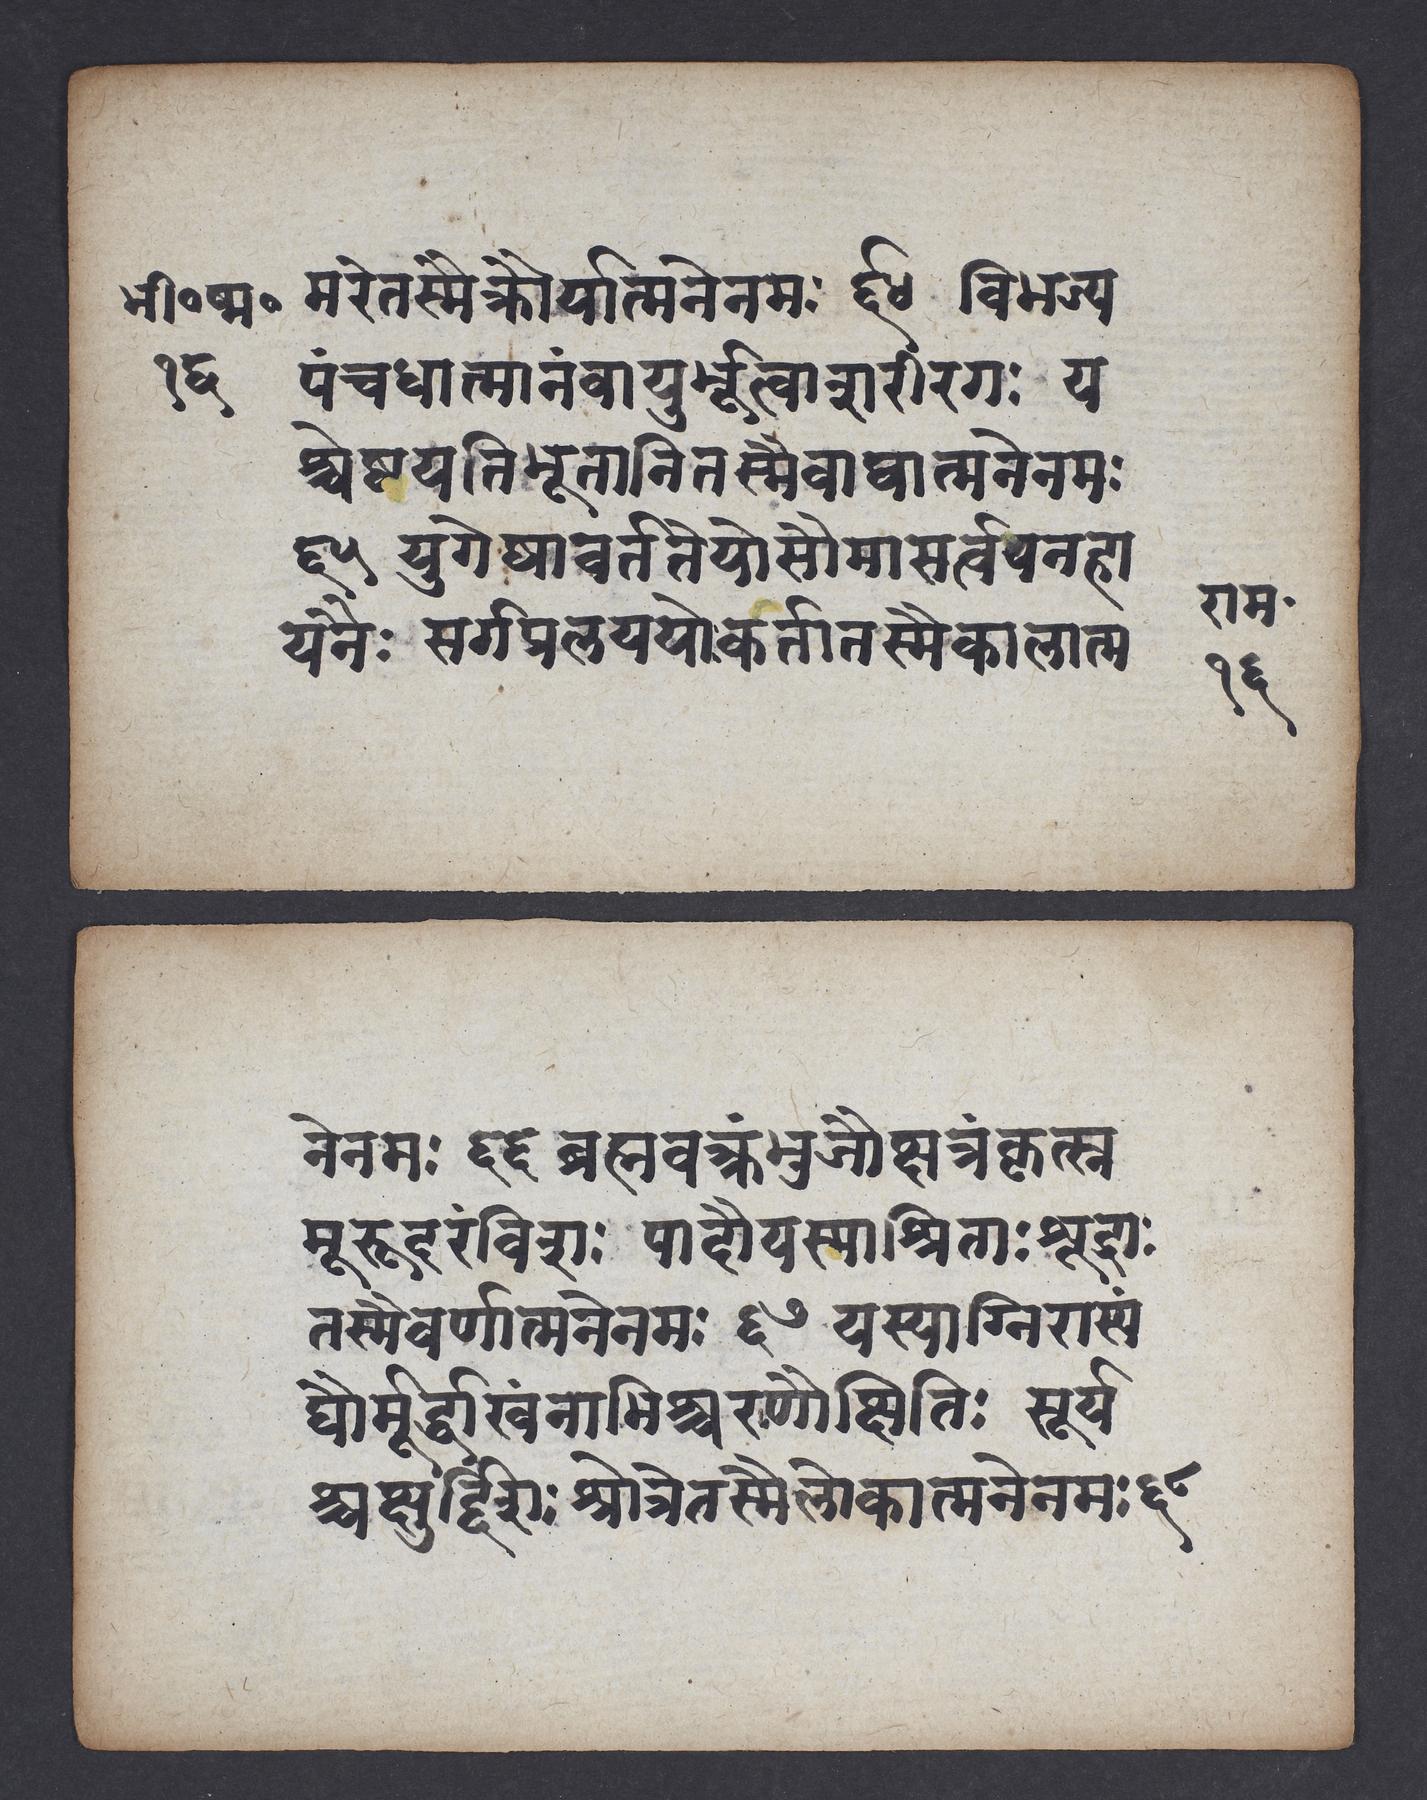 भी॰ष्म॰
१६
मरेतस्मैक्रौर्यात्मनेनमः ६४ विभज्य
पंचधात्मानंवायुर्भूत्वाशरीरगः य
श्चेष्टयतिभूतानितस्मैवाय्वात्मनेनमः
६५ युगेष्वावर्ततेयोसौमासर्त्वयनहा
यनैः सर्गप्रलययोःकर्तातस्मैकालात्म
राम॰
१६
नेनमः ६६ ब्रह्मवक्त्रंभुजौक्षत्रंकृत्स्न
मूरूदरंविशः पादौयस्याश्रिताःशूद्राः
तस्मैवर्णात्मनेनमः ६७ यस्याग्निरास्यं
द्यौर्मूर्द्धाखंनाभिश्चरणौक्षितिः सूर्य
श्चक्षुर्द्दिशः श्रोत्रेतस्मैलोकात्मनेनमः ६८